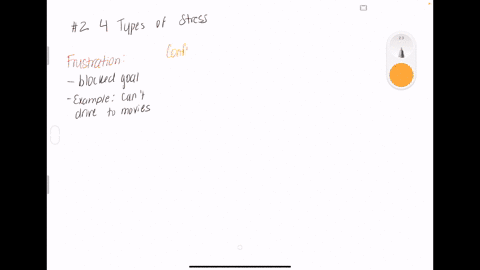 #2 4 Types of Stress
Frustration:
Conf
- blocked goal
- Example: Can't
drive to movies